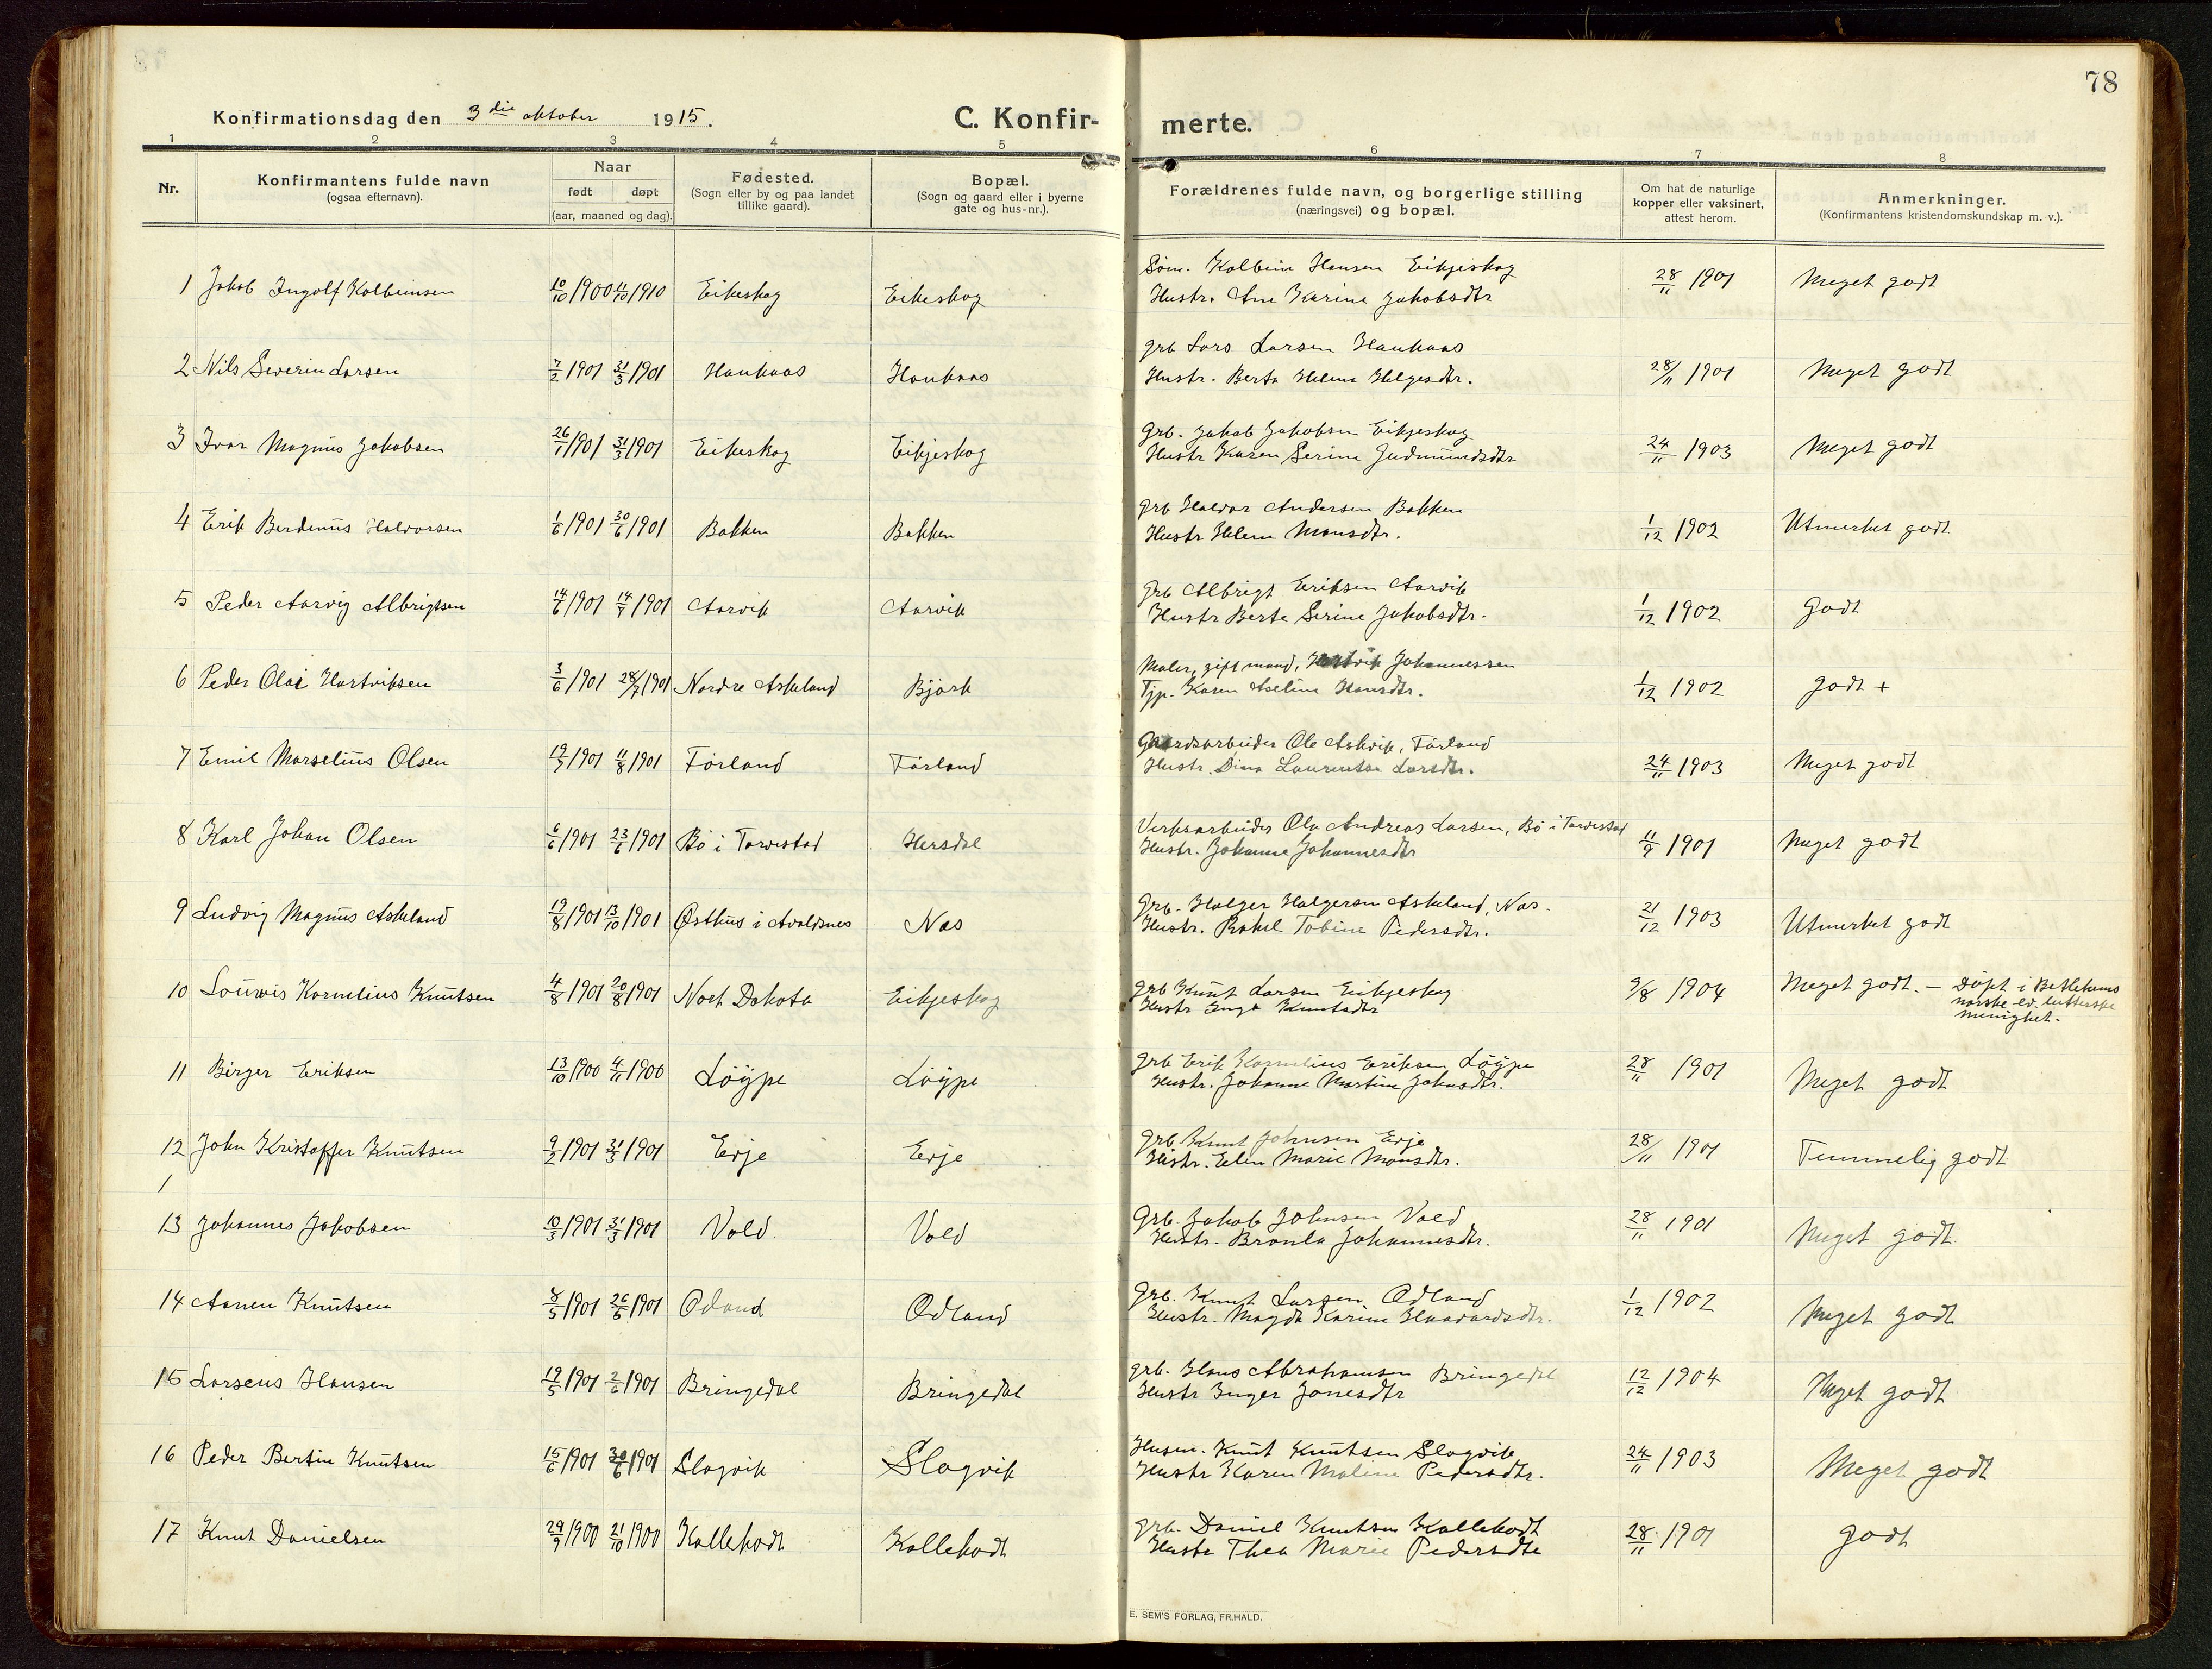 78
Konfirmationsdag den 3die oktober 1915.
C. Konfir-
merte.
1 2 3 4 5 6 7 8
Nr.
Konfirmantens fulde navn
(ogsaa efternavn).
Naar
født døpt
(aar, maaned og dag).
Fødested.
(Sogn eller by og paa landet
tillike gaard).
Bopæl.
(Sogn og gaard eller i byerne
gate og hus-nr.).
Forældrenes fulde navn, og borgerlige stilling
(næringsvei) og bopæl.
Om hat de naturlige
kopper eller vaksinert,
attest herom.
Anmerkninger.
(Konfirmantens kristendomskundskap m. v.).
1 Jakob Ingolf Kolbeinsen 10/10 1900 11/10 1910 Eikeskog Eikeskog
Søm. Kolbein Hansen Eikjeskog
Hustr. Ane Karine Jakobsdtr
28/11 1901 Meget godt
2 Nils Severin Larsen 7/2 1901 31/3 1901 Haukaas Haukaas
grb Lars Larsen Haukaas
Hustr. Berta Helene Helgesdtr.
28/11 1901 Meget godt
3 Ivar Magnus Jakobsen 26/1 1901 31/3 1901 Eikeskog Eikjeskog
Grb. Jakob Jakobsen Eikjeskog
Hustr Karen Serine Gudmundsdtr
24/11 1903 Meget godt
4 Erik Berdinus Haldorsen 1/6 1901 30/6 1901 Bakken Bakken
grb Haldor Andersen Bakken
Hustr Helene Monsdtr.
1/12 1902 Utmerket godt
5 Peder Aarvig Albrigtsen 14/6 1901 14/7 1901 Aarvik Aarvik
Grb Albrigt Eriksen Aarvik
Hustr Berte Serine Jakobsdtr.
1/12 1902 Godt
6 Peder Olai Hartviksen 3/6 1901 28/7 1901 Nordre Askeland Bjørk
Maler, gift mand, Hartvik Johannessen
Tjp. Karen Aseline Hansdtr.
1/12 1902 godt +
7 Emil Marselius Olsen 19/7 1901 11/8 1901 Førland Førland
Gaardsarbeider Ole Askvik, Førland
Hustr. Dina Laurentse Larsdtr.
24/11 1903 Meget godt
8 Karl Johan Olsen 6/6 1901 23/6 1901 Bø i Torvestad Hersdal
Verksarbeider Ola Andreas Larsen, Bø i Torvestad
Hustr. Johanne Johannesdtr
11/9 1901 Meget godt
9 Ludvig Magnus Askeland 19/8 1901 13/10 1901 Østhus i Avaldsnes Nes
Grb. Holger Holgersen Askeland, Nes.
Hustr. Rakel Tobine Pedersdtr.
21/12 1903 Utmerket godt
10 Louwis Kornelius Knutsen 4/8 1901 20/8 1901 Noet Dakota Eikjeskog
grb Knut Larsen Eikjeskog
Hustr Inga Knutsdtr
9/8 1904 Meget godt. — Døpt i Betlehems
norske ev. lutherske
menighet.
11 Birger Eriksen 13/10 1900 4/11 1900 Løype Løype
grb Erik Kornelius Eriksen Løype
Hustr. Johanne Martine Johnsdtr.
28/11 1901 Meget godt
12 John Kristoffer Knutsen 9/2 1901 31/3 1901 Erje Erje
1
grb. Knut Johnsen Erje
Hustr. Elen Marie Monsdtr.
28/11 1901 Temmelig godt
13 Johannes Jakobsen 10/3 1901 31/3 1901 Vold Vold
Grb. Jakob Johnsen Vold
Hustr. Bronla Johannesdtr.
28/11 1901 Meget godt
14 Aanen Knutsen 8/5 1901 26/5 1901 Odland Odland
Grb. Knut Larsen Odland
Hustr. Magda Karine Haavardsdtr.
1/12 1902 Meget godt
15 Larsens Hansen 19/5 1901 2/6 1901 Bringedal Bringedal
grb. Hans Abrahamsen Bringedal
Hustr Inger Jonesdtr
12/12 1904 Meget godt
16 Peder Bertin Knutsen 15/6 1901 30/6 1901 Slagvik Slagvik
Husm. Knut Knutsen Slagvik
Hustr Karen Maline Pedersdtr.
24/11 1903 Meget godt
17 Knut Danielsen 29/9 1900 21/10 1900 Kallekodt Kallekodt
grb. Daniel Knutsen Kallekodt
Hustr Thea Marie Pedersdtr
28/11 1901 godt
E. SEM'S FORLAG, FR.HALD.